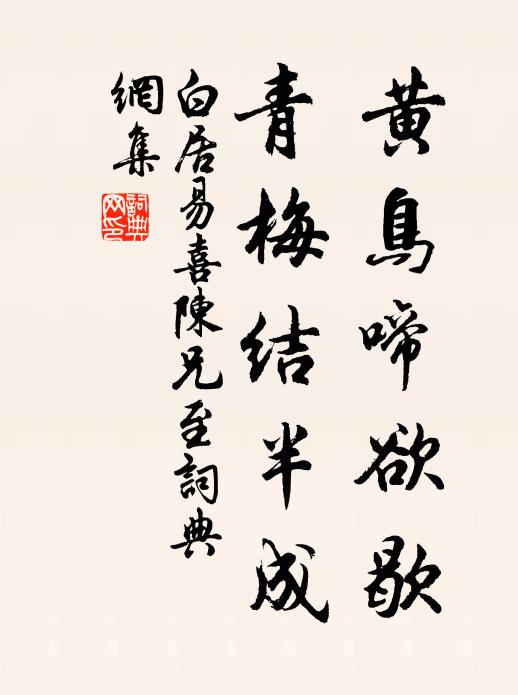 黄鳥啼欲歇
青梅結半成
白居易喜陳兄至詞典
網集
詞典
网印